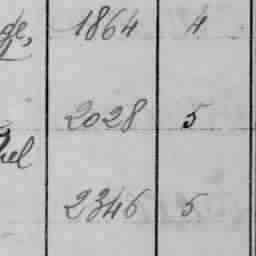 de, 1864 4
2028 5
hel
2346 5